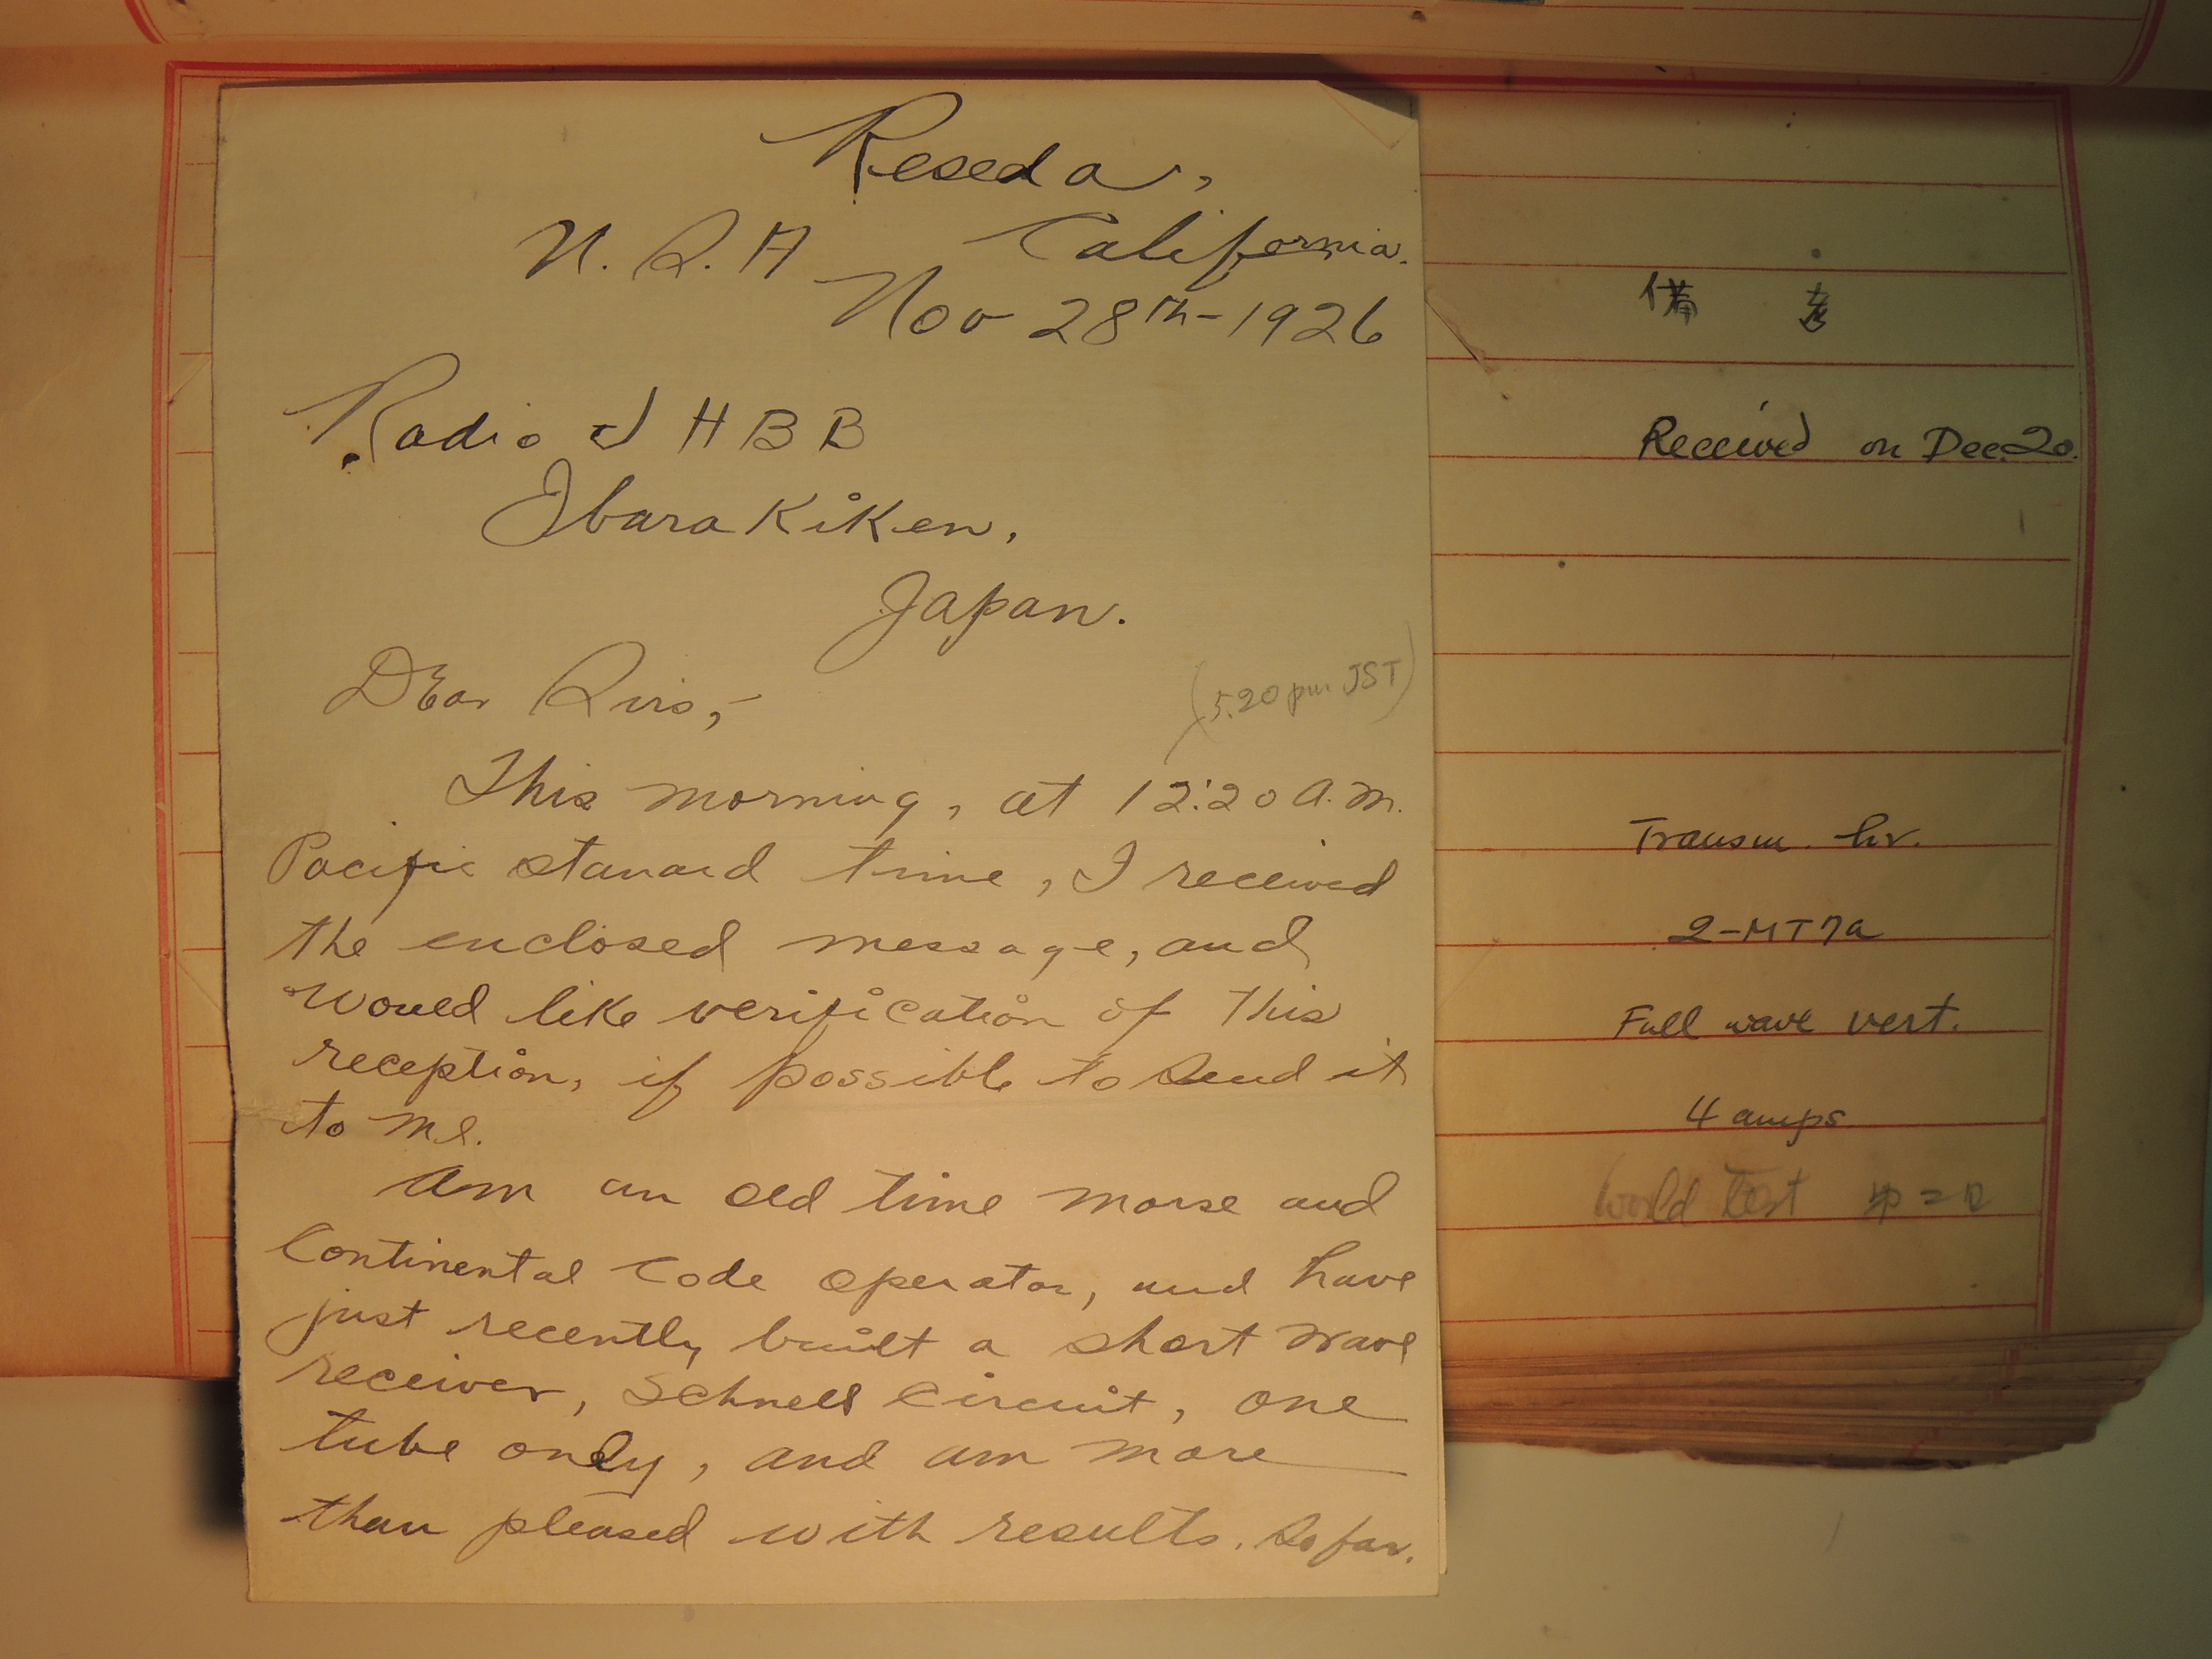 Reseda,
U. S. A California.
Nov 28th-1926
Radio J H B B
Ibarakiken,
Japan.
Dear Sirs,-
(5.20 pm JST)
This morning, at 12:20 A.M.
Pacific stanard time, I received
the enclosed message, and
would like verification of this
reception, if possible to send it
to me.
Am an old time morse and
Continental Code operator, and have
just recently built a short wave
receiver, Schnell Circuit, one
tube only, and am more
than pleased with results. So far.
備 考
Received on Dec. 20.
Transm. hr.
2-MT7a
Full wave vert.
4 amps
World Test